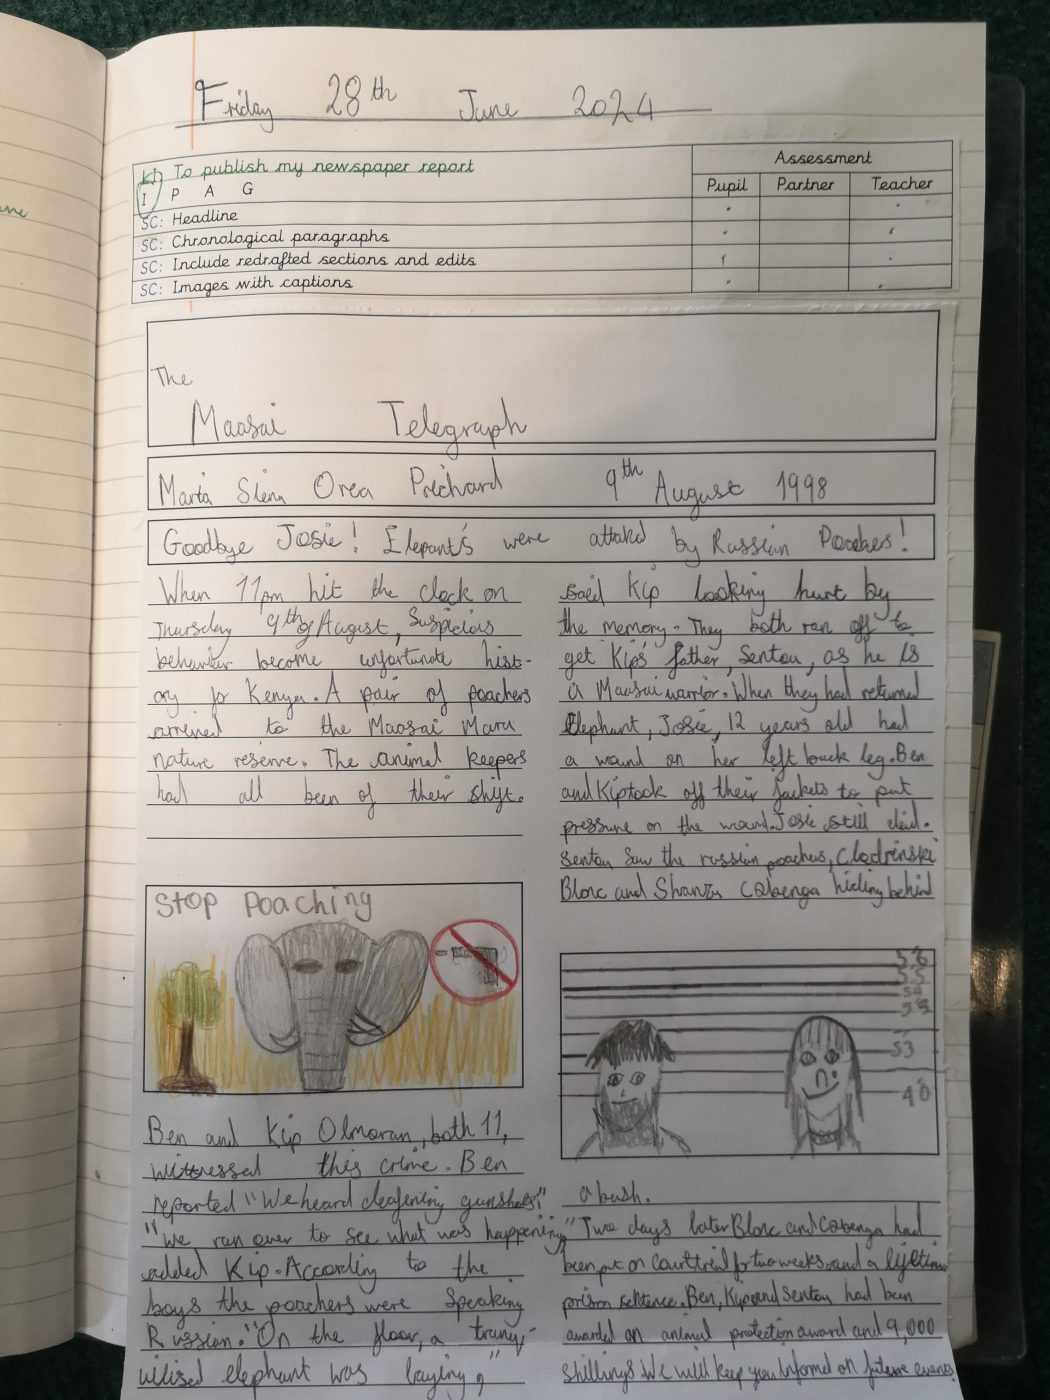 Friday 28th June 2024
LI: To publish my newspaper report
I P A G
SC: Headline
SC: Chronological paragraphs
SC: Include redrafted sections and edits
SC: Images with captions
Assessment
Pupil Partner Teacher
The
Maasai Telegraph
Maria Slena Orea Prichard 9th August 1998
Goodbye Josie! Elepant's were attaked by Russian Poachers!
When 11pm hit the clock on
Thursday 9th of August, Suspicios
behaviur become unfortunate hist-
ory for Kenya. A pair of poachers
arrived to the Maasai Mara
nature reserve. The animal keepers
had all been of their shift.
Stop Poaching
Ben and Kip Olmoran, both 11,
wittnessed this crime. Ben
reported "We heard deafening gunshots!"
"We ran over to see what was happening"
added Kip. According to the
boys the poachers were speaking
Russian. "On the floor, a tranq-
uilised elephant was laying,"
said Kip looking hurt by
the memory. They both ran off to
get Kip's father, Sentou, as he is
a Maasai warrior. When they had returned
Elephant, Josie, 12 years old had
a wound on her left back leg. Ben
and Kip took off their jackets to put
pressure on the wound. Josie still died.
Sentou saw the russian poachers,
Blonc and Shanza Cabenga hiding behind
5'6
5'5
5'3
53
40
a bush.
Two days later Blonc and Cabenga had
been put on court treil for two weeks and a lifetime
prison sentence. Ben, Kip and Sentou had been
awarded an animal protection award and 9,000
shillings. We will keep you informed on future events.